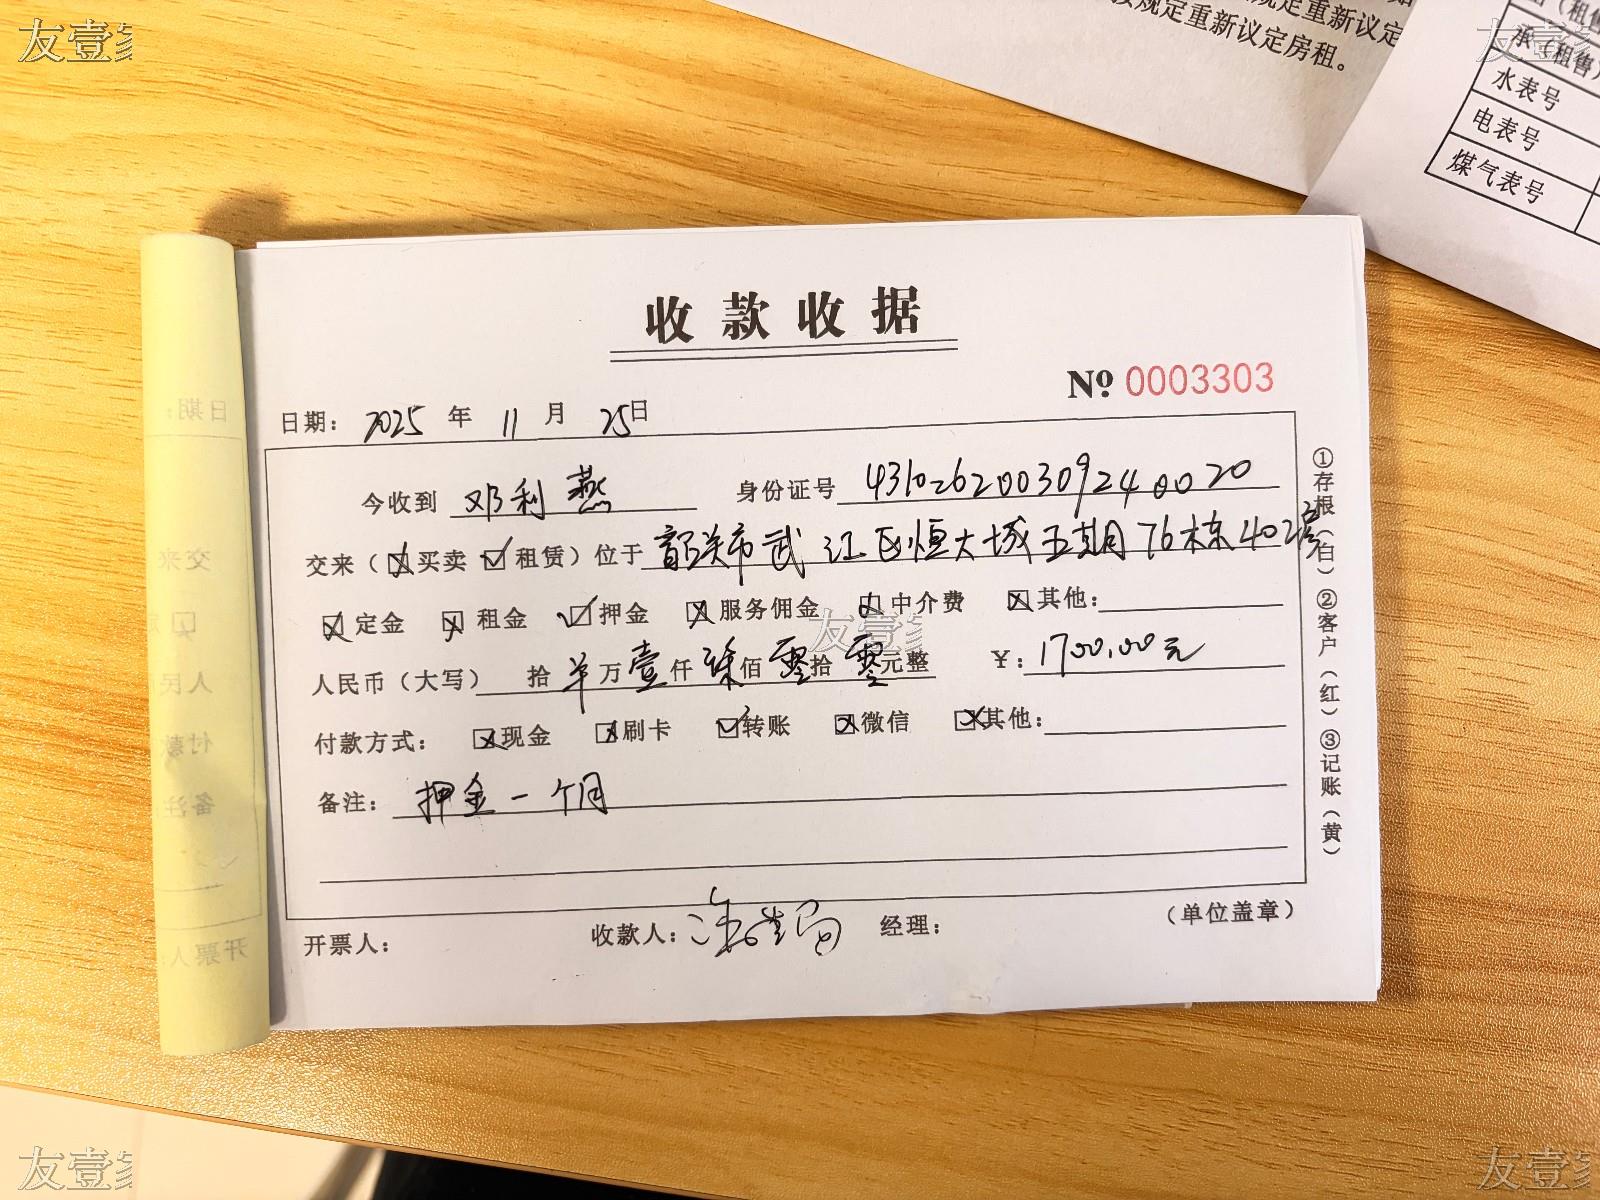 友壹家
友壹家
规定重新议定
按规定重新议定房租。
承（租售）
水表号
电表号
煤气表号
收款收据
№ 0003303
日期： 2025 年 11 月 25日
今收到 邓利燕 身份证号 431026200309240020
交来（☒买卖 ☑租赁）位于 韶关市武江区恒大城五期76栋402房
☒定金 ☒租金 ☑押金 ☒服务佣金 ☒中介费 ☒其他：
人民币（大写） 拾 万壹仟柒佰零拾零元整 ￥：1700.00元
付款方式： ☒现金 ☒刷卡 ☑转账 ☒微信 ☒其他：
备注： 押金一个月
开票人： 收款人： 经理： （单位盖章）
①存根（白）②客户（红）③记账（黄）
日期：
交来
人民
付款
备注
开票人：
友壹家
友壹家
友壹家